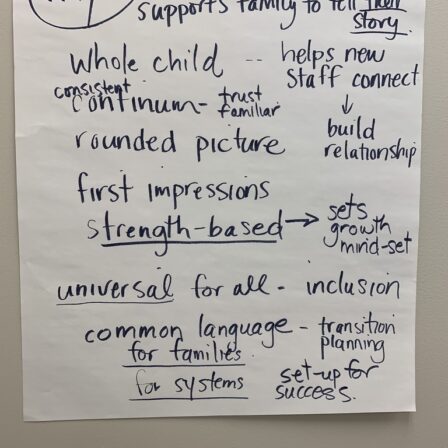 supports family to tell their
story.
Whole child -- helps new
staff connect
consistent
continuum - trust
familiar
↓
build
relationship
rounded picture
first impressions
strength-based → sets
growth
mind-set
universal for all - inclusion
common language - transition
planning
for families
for systems
set-up for
success.